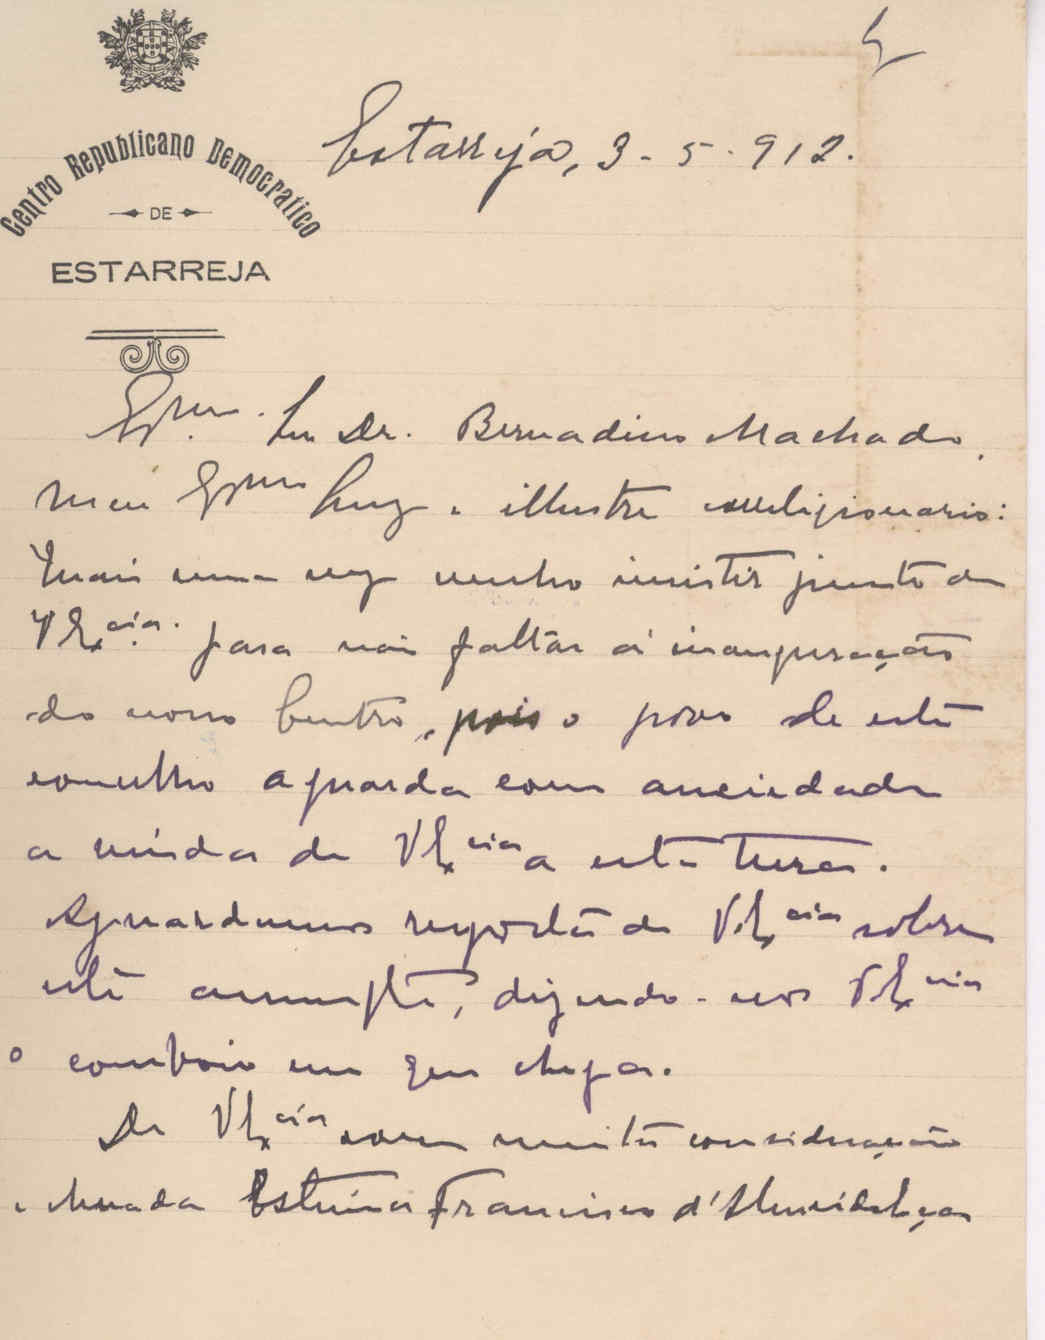 Centro Republicano Democratico
DE
ESTARREJA
Estarreja, 3-5-912.
Exmo. Snr Dr. Bernardino Machado
Meu Exmo e illustre correligionario:
Mais uma vez venho insistir junto de
V Excia. para não faltar á inauguração
do nosso Centro, pois o povo de este
concelho aguarda com anciedade
a vinda de V Excia a esta terra.
Aguardamos resposta de V. Excia sobre
este assumpto, dizendo-nos V. Excia
o comboio em que chega.
De V Excia com muita consideração
e elevada Estima Francisco d'Almeida